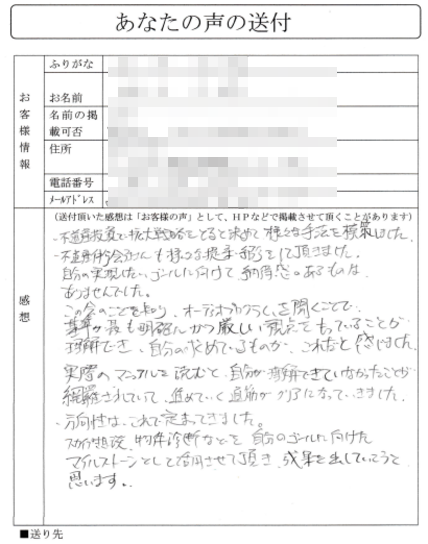 あなたの声の送付
お客様情報
ふりがな
お名前
名前の掲載可否
住所
電話番号
メールアドレス
感想
(送付頂いた感想は「お客様の声」として、HPなどで掲載させて頂くことがあります)
・不動産投資で拡大戦略をとると決めて様々な手法を模索しました。
・不動産仲介会社さんも様々な提案をして頂きました。
自分の実現したいゴールに向けて納得感のあるものは
ありませんでした。
この会のことを知り、オーディオプログラムを聞くことで
基準が最も明確にかつ厳しい視点でもっていることが
理解でき、自分の求めているものが、これだと感じました。
実際のマニュアルを読むと、自分が理解できていなかったことが
網羅されていて、進めていく道筋がクリアになっていきました。
・方向性はこれで定まってきました。
スカイプ相談、物件診断などを自分のゴールに向けた
マイルストーンとして活用させて頂き、成果を出していこうと
思います。
■送り先